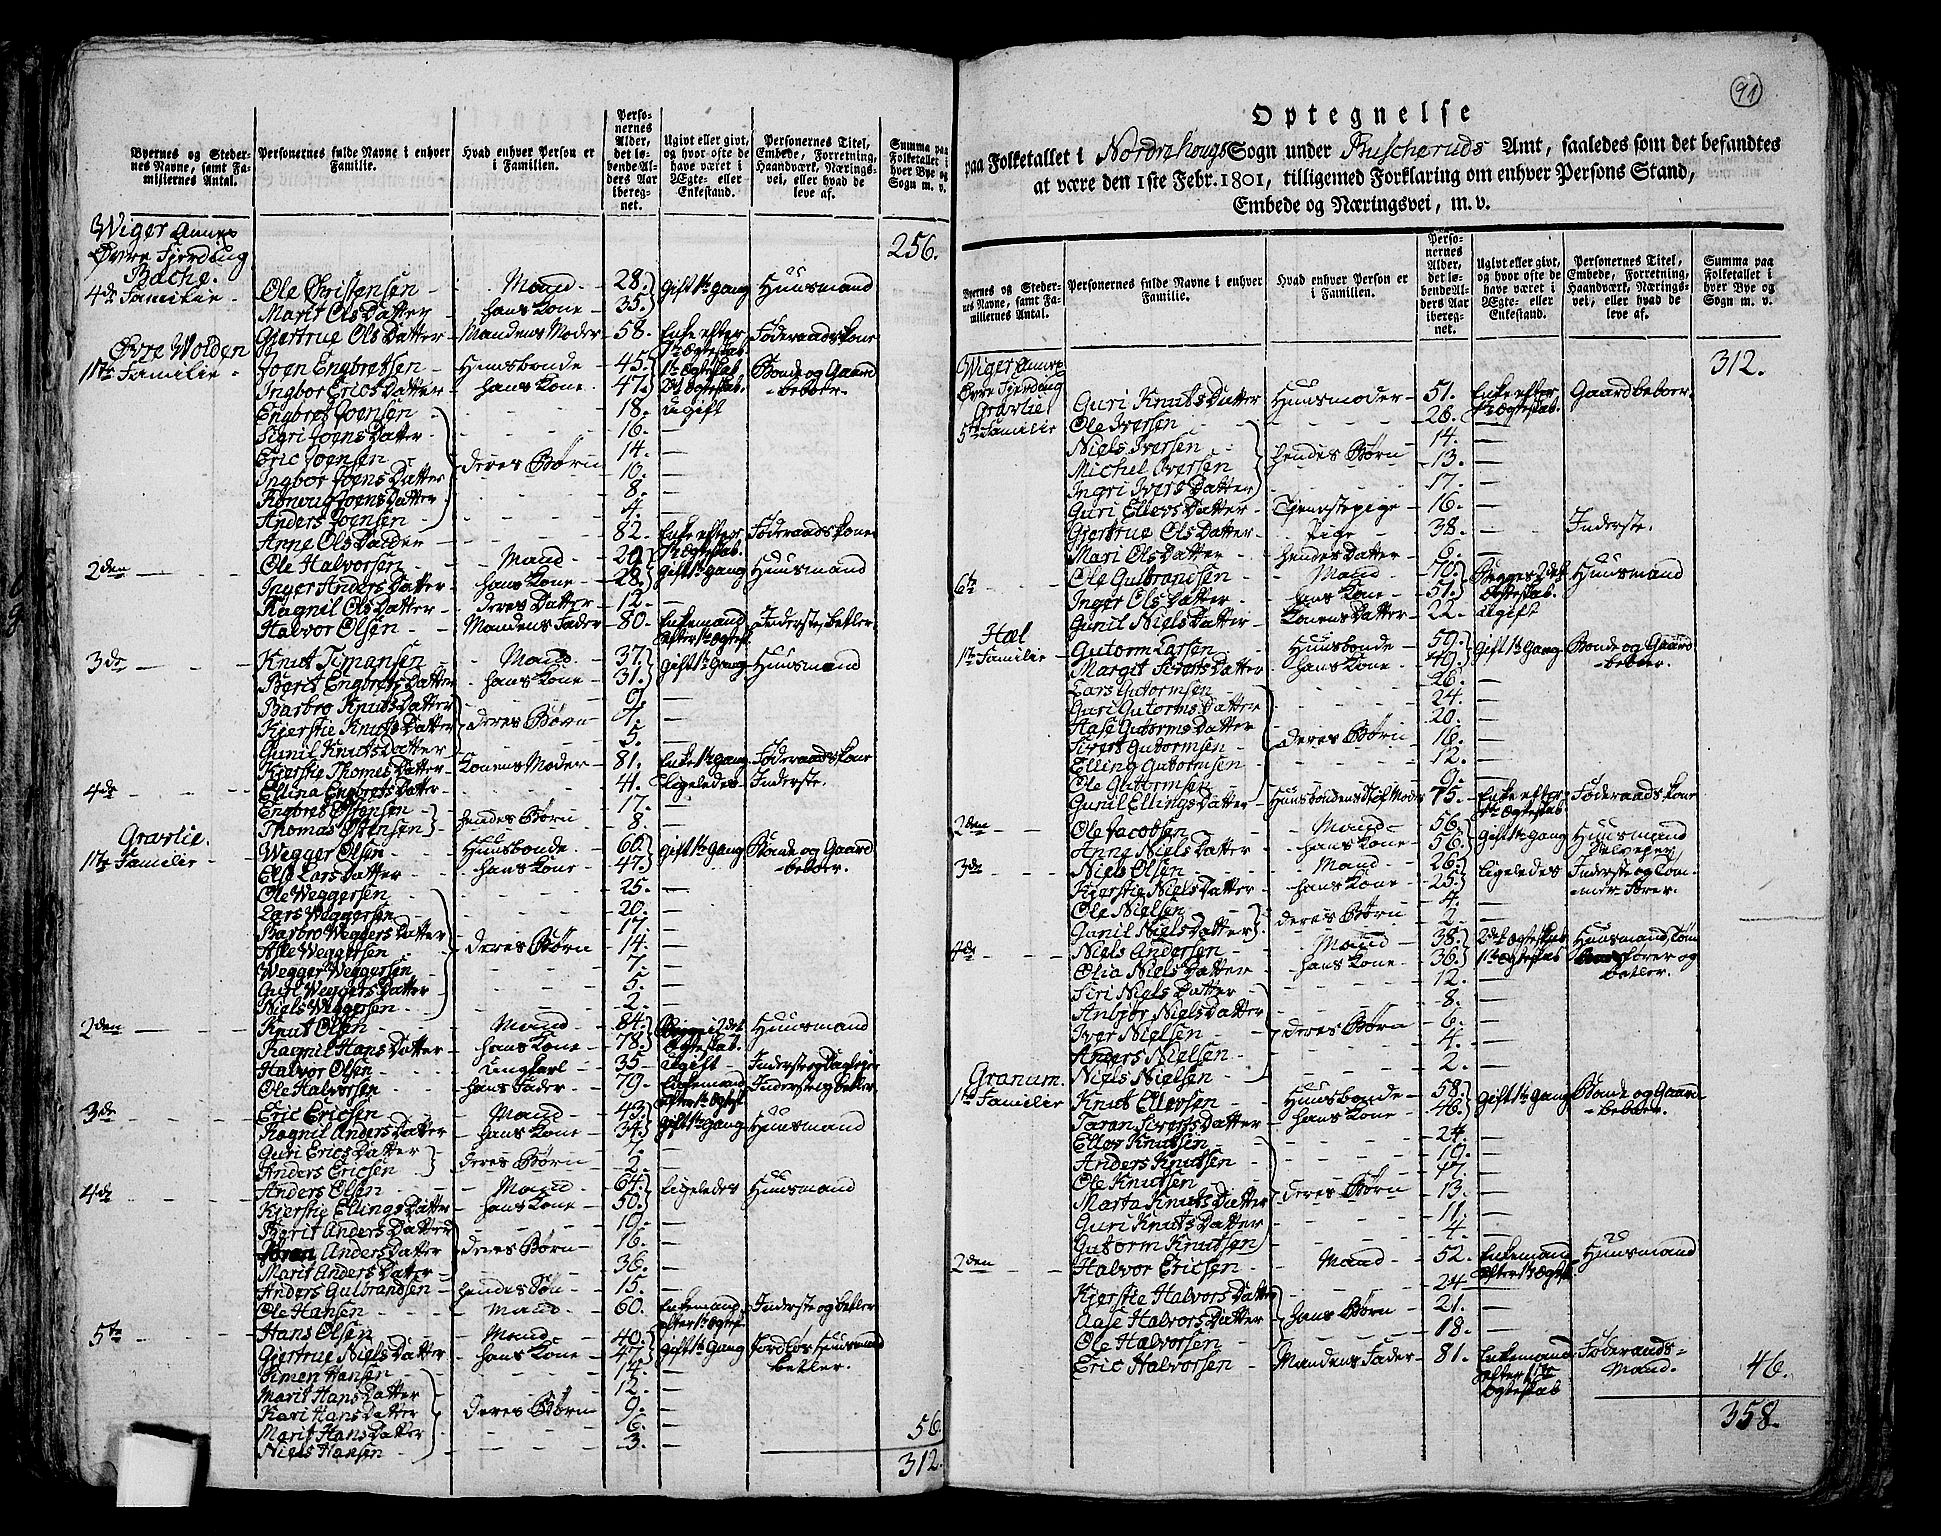 Byernes og Stedernes Navne, samt Familiernes Antal. | Personernes fulde Navne i enhver Familie. | Hvad enhver Person er i Familien. | Personernes Alder, det løbende Alders Aar iberegnet. | Ugivt eller givt, og hvor ofte de have været i Ægte- eller Enkestand. | Personernes Titel, Embede, Forretning, Haandværk, Næringsvei, eller hvad de leve af. | Summa paa Folketallet i hver Bye og Sogn m. v.
Wiger Annex
Øvre Fjerding 256.
Bache.
4de Familie Ole Christensen Mand 28. Gift 1te gang Huusmand
Marit Ols Datter hans Kone 35.
Giertrue Ols Datter Mandens Moder 58. Enke efter 1te Ægtesk. Føderaadskone
Øvre Wolden
1te Familie Joen Engbretsen Huusbonde 45. 1te Ægteskab Bonde og Gaard beboer.
Ingbor Erics Datter hans Kone 47. Ægteskab.
Engbret Joensen 18. ugift
Sigri Joens Datter 16.
Eric Joensen deres Børn 14. —
Ingbor Joens Datter 10.
Joens Datter 8. —
Anders Joensen 4. —
Anne Ols Datter 82. Enke efter 1te Ægteskab. Føderaadskone
2den Ole Halvorsen Mand 29. Gift 1te gang Huusmand
Inger Anders Datter hans Kone 28.
Ragnil Ols Datter deres Datter 12. —
Halvor Olsen Mandens Fader 80. Enkemand efter 1te Ægtesk. Inderste, betler
3de Knut Simansen Mand 37. Gift 1te gang Huusmand
Berit Engbrets Datter hans Kone 31.
Barbro Knuts Datter 9.
Kjerstie Knuts Datter deres Børn 7. —
Gunil Knuts Datter 5. —
Kjerstie Thomes Datter Konens Moder 81. Enke 1te gang Føderaadskone
4de Ellina Engbrets Datter 41. Ligeledes Inderste.
Engbret Østensen hendes Børn 17. —
Thomas Østensen 8. —
Gravlie.
1te Familie Wegger Olsen Huusbonde 60. Gift 1te gang Bonde og Gaard beboer.
Else Lars Datter hans Kone 47.
Ole Weggersen 25. —
Lars Weggersen 20. —
Barbro Weggers Datter 17. —
Asle Weggersen deres Børn 14. —
Wegger Weggersen 7. —
Guri Weggers Datter 5. —
Niels Weggersen 2. —
2den Knut Olsen Mand 84. Begge i 2det Ægteskab. Huusmand
Ragnil Hans Datter hans Kone 78.
Halvor Olsen Ungkarl 35 Ugift Inderste og Dagleier
Ole Halvorsen hans Fader 79. Enkemand efter 1te Ægtesk. Inderste og betler
3de Eric Ericsen Mand 43. Gift 1te gang Huusmand
Ragnil Anders Datter hans Kone 34.
Guri Erics Datter deres Børn 7. —
Anders Ericsen 2. —
4de Anders Olsen Mand 64. Ligeledes Huusmand
Kjerstie Ellings Datter hans Kone 50.
Berit Anders Datter 19. —
Anders Datter deres Børn 16. —
Marit Anders Datter 36. —
Anders Gulbrandsen hendes Søn 15. —
Ole Hansen Mand 60. Enkemand efter 1te Ægtesk. Inderste og betler
5te Hans Olsen Mand 40. Gift 1te Gang Jordløs Huusmand betler.
Giertrue Niels Datter hans Kone 47.
Simen Hansen 14. —
Marit Hans Datter 12. —
Kari Hans Datter deres Børn 9. —
Marit Hans Datter 6. —
Niels Hansen 3. —
56.
312.
91
Optegnelse
paa Folketallet i Nordrehougs Sogn under Buscheruds Amt, saaledes som det befandtes
at være den 1ste Febr. 1801, tilligemed Forklaring om enhver Persons Stand,
Embede og Næringsvei, m. v.
Byernes og Stedernes Navne, samt Familiernes Antal. | Personernes fulde Navne i enhver Familie. | Hvad enhver Person er i Familien. | Personernes Alder, det løbende Alders Aar iberegnet. | Ugivt eller givt, og hvor ofte de have været i Ægte- eller Enkestand. | Personernes Titel, Embede, Forretning, Haandværk, Næringsvei, eller hvad de leve af. | Summa paa Folketallet i hver Bye og Sogn m. v.
Wiger Annex 312.
Øvre Fjerding
Gravlie
5te Familie Guri Knuts Datter Huusmoder 51. Enke efter 1te Ægteskab. Gaardbeboer.
Ole Iversen 28. —
Niels Iversen hendes Børn 14. —
Michel Iversen 13. —
Ingri Ivers Datter 17. —
Guri Ellevs Datter Tjenestepige 16. —
Gjertrue Ols Datter Pige 38. — Inderste.
Mari Ols Datter hendes Datter 6. —
6te Ole Gulbrandsen Mand 70. Begge i 2det Ægteskab. Huusmand
Inger Ols Datter hans Kone 51.
Gunil Niels Datter Konens Datter 22. Ugift
Hæl
1te Familie Gutorm Larsen Huusbonde 59. Gift 1te Gang Bonde og Gaard beboer.
Margit Sivers Datter hans Kone 49.
Lars Gutormsen 26. —
Guri Gutorms Datter 24. —
Aase Gutorms Datter 20. —
Sivert Gutormsen deres Børn 16. —
Elling Gutormsen 12. —
Ole Gutormsen 9. —
Gunil Ellings Datter Huusbondens Stif Moder 75. Enke efter 1te Ægteskab Føderaadskone
2den Ole Jacobsen Mand 56. Gift 1te gang Huusmand
Anne Niels Datter hans Kone 56.
3de Niels Olsen Mand 26. Ligeledes Inderste og Tømmer
Kjerstie Niels Datter hans Kone 25.
Ole Nielsen deres Børn 4. —
Gunil Niels Datter 2. —
4de Niels Andersen Mand 38. 2det Ægteskab Huusmand, Tømmerhører og betler.
Olia Niels Datter hans Kone 36. 1te Ægteskab
Siri Niels Datter 12. —
Anbjør Niels Datter 8. —
Iver Nielsen deres Børn 6. —
Anders Nielsen 4. —
Niels Nielsen 2. —
Granum.
1te Familie Knut Ellevsen Huusbonde 58. Gift 1te Gang Bonde og Gaard beboer.
Taran Siverts Datter hans Kone 46.
Ellev Knutsen 24. —
Anders Knutsen 19. —
Ole Knutsen 17. —
Marta Knuts Datter deres Børn 13. —
Guri Knuts Datter 11. —
Gutorm Knutsen 4. —
2den Halvor Ericsen Mand 52. Enkemand efter 1te Ægtesk. Huusmand
Kjerstie Halvors Datter 24
Aase Halvors Datter hans Børn 21. —
Ole Halvorsen 18. —
Eric Halvorsen Mandens Fader 81. Enkemand efter 1te Ægteskab Føderaads-Mand.
46.
358.